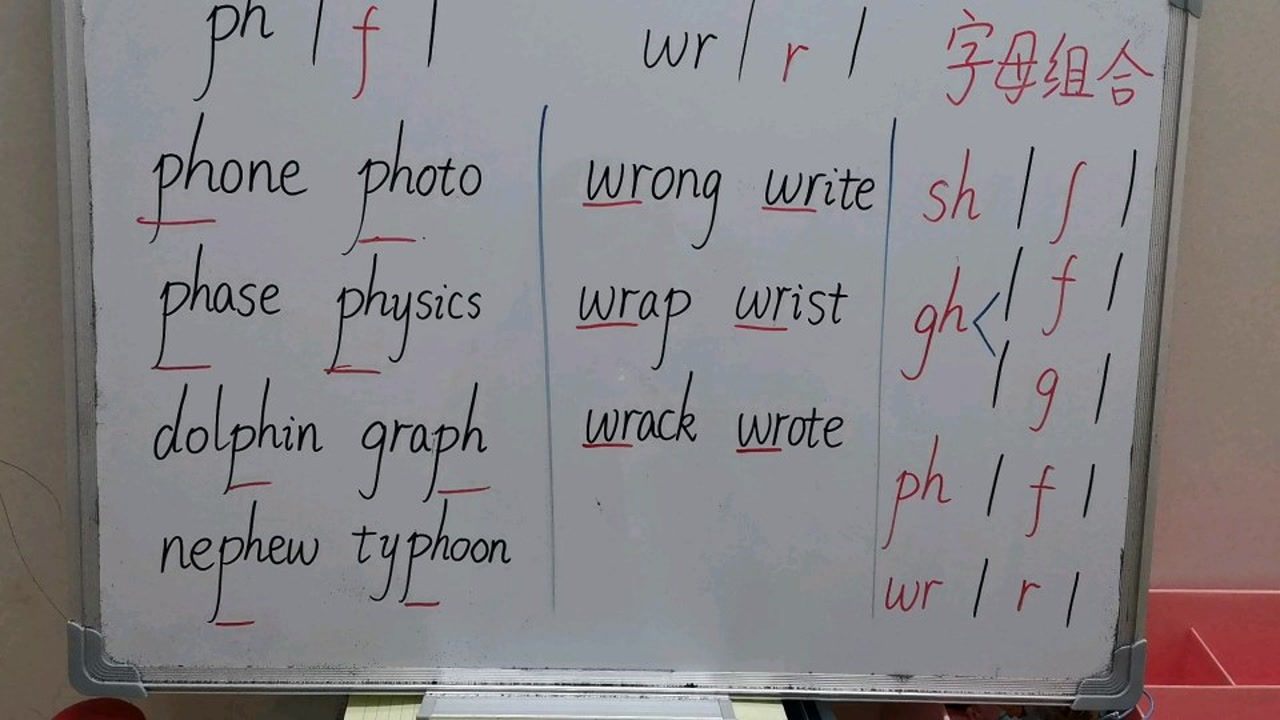 ph / f /
phone photo
phase physics
dolphin graph
nephew typhoon
wr / r /
wrong write
wrap wrist
wrack wrote
字母组合
sh / ʃ /
gh < / f /
/ g /
ph / f /
wr / r /